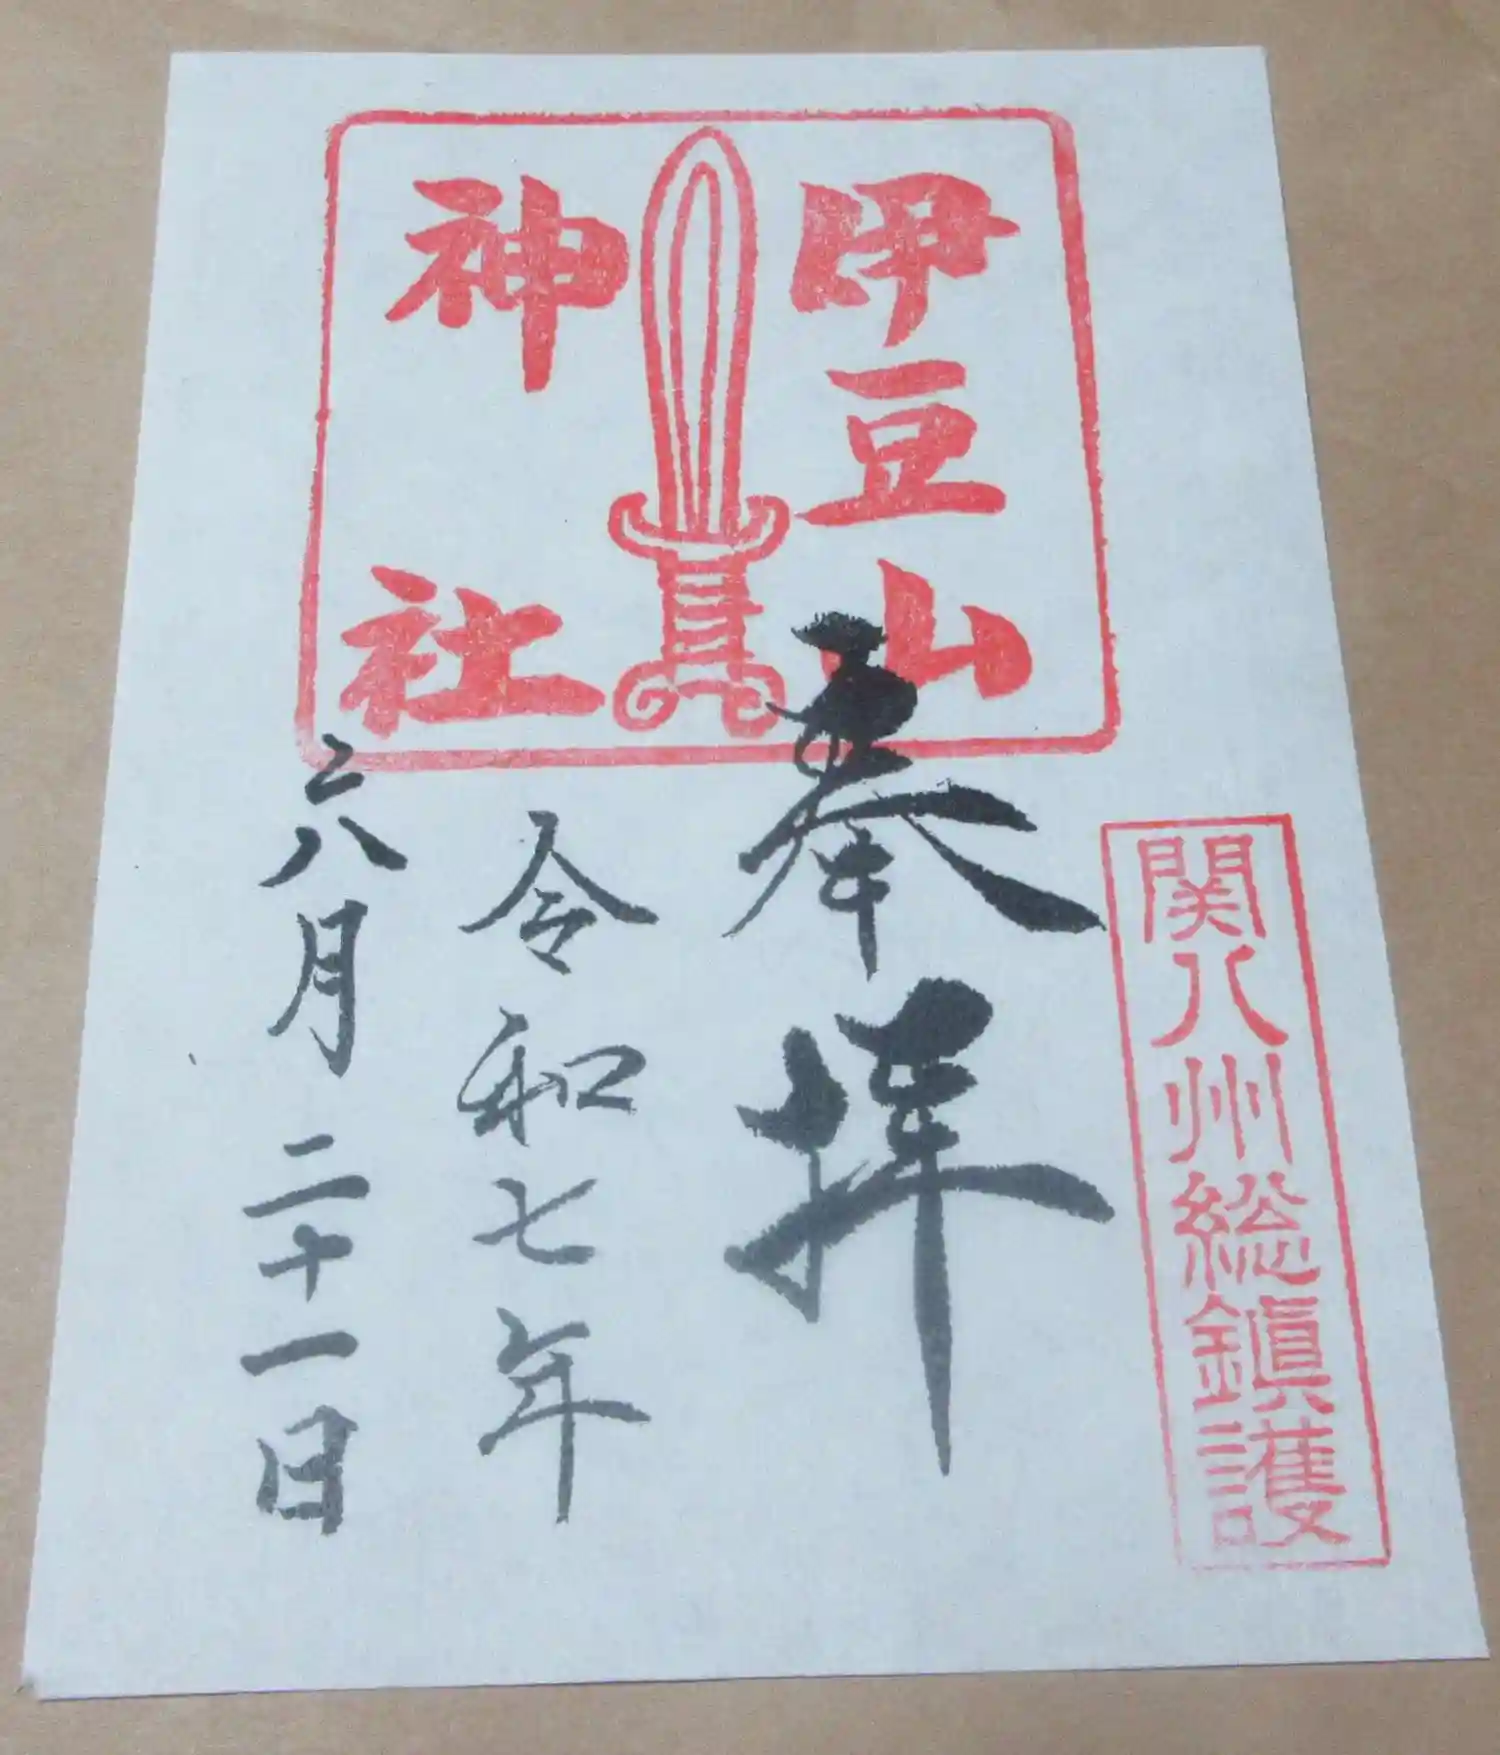 関八州総鎮護
伊豆山
神社
奉拝
令和七年
六月二十一日